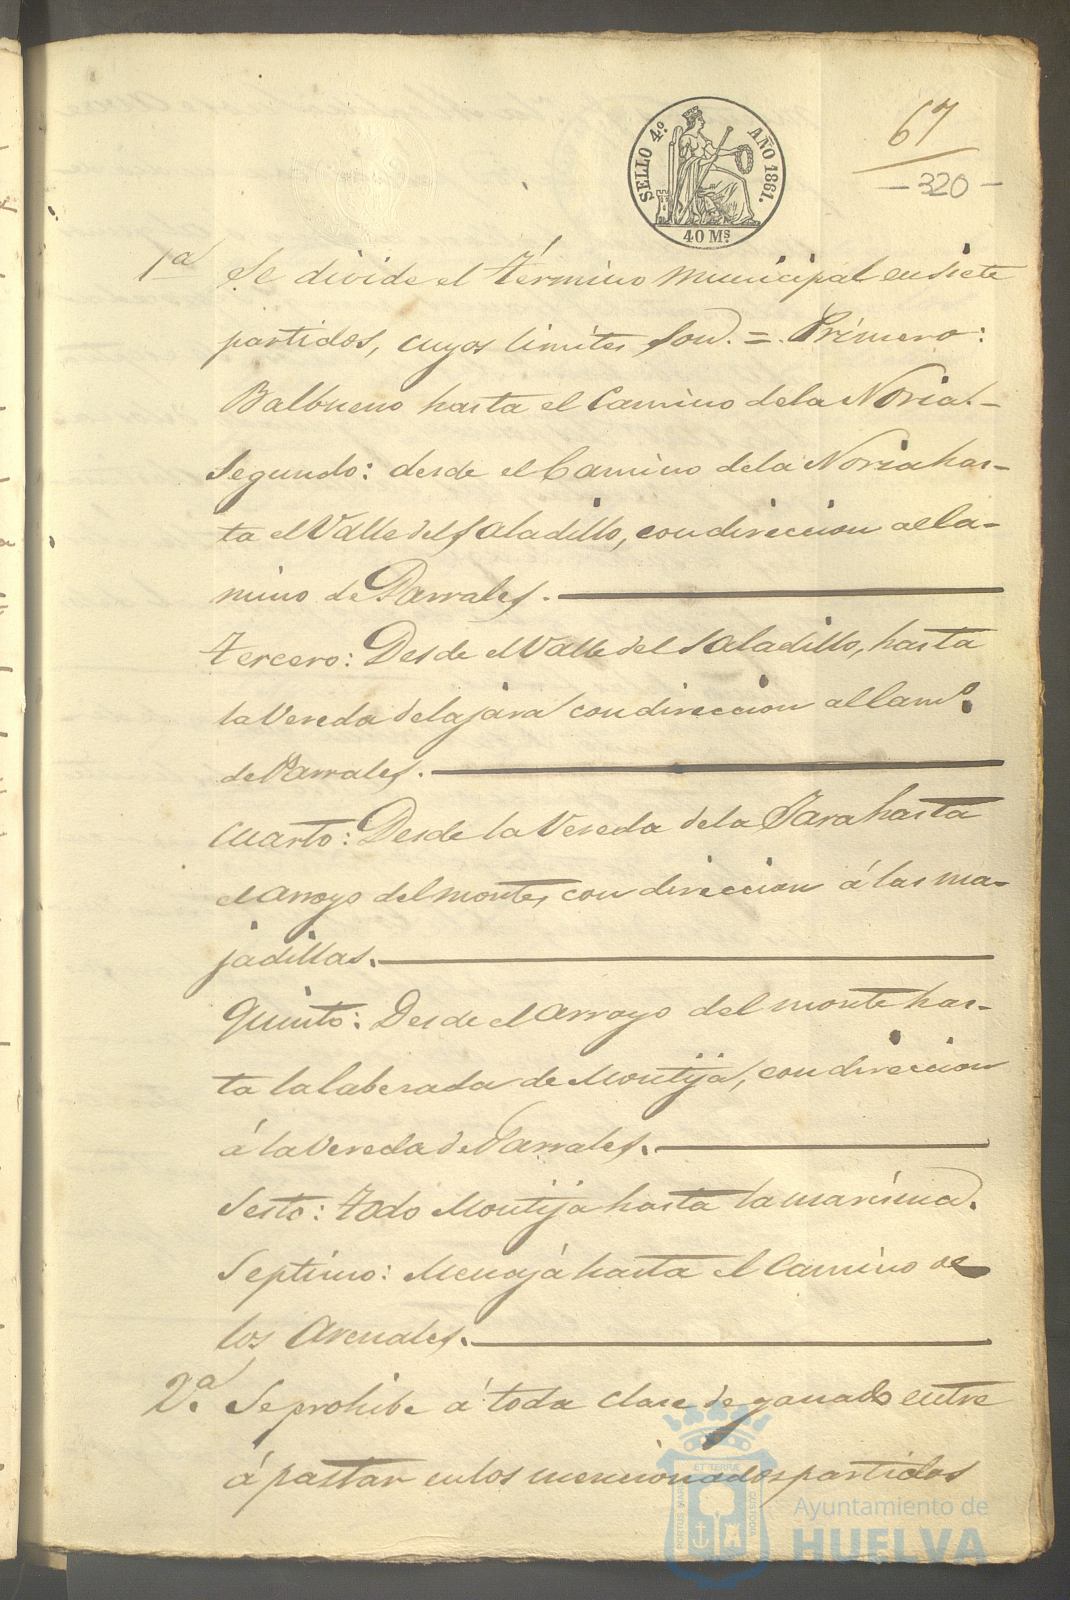 SELLO 4.º AÑO 1861.
40 Ms.
67
- 320 -
1.ª Se divide el término municipal en siete
partidos, cuyos limites son. = Primero:
Balbueno hasta el Camino dela Noria. -
Segundo: desde el Camino dela Noria has-
ta el Valle del Saladillo, con direccion al Ca-
mino de Parrales.
tercero: Desde el Valle del Saladillo, hasta
la Vereda delajara con direccion al Cam.º
de Parrales.
Cuarto: Desde la Vereda dela Jara hasta
el arroyo del monte, con direccion á las ma-
jadillas.
Quinto: Desde el arroyo del monte has-
ta la laberada de Montija, con direccion
á la Vereda de Parrales.
Sesto: todo Montija hasta la marisma.
Septimo: Menajá hasta el Camino de
los Arenales.
2.ª Se prohibe á toda clase de ganado entre
á pastar en los mencionados partidos
ET TERRÆ
PORTUS MARIS
CUSTODIA
Ayuntamiento de
HUELVA